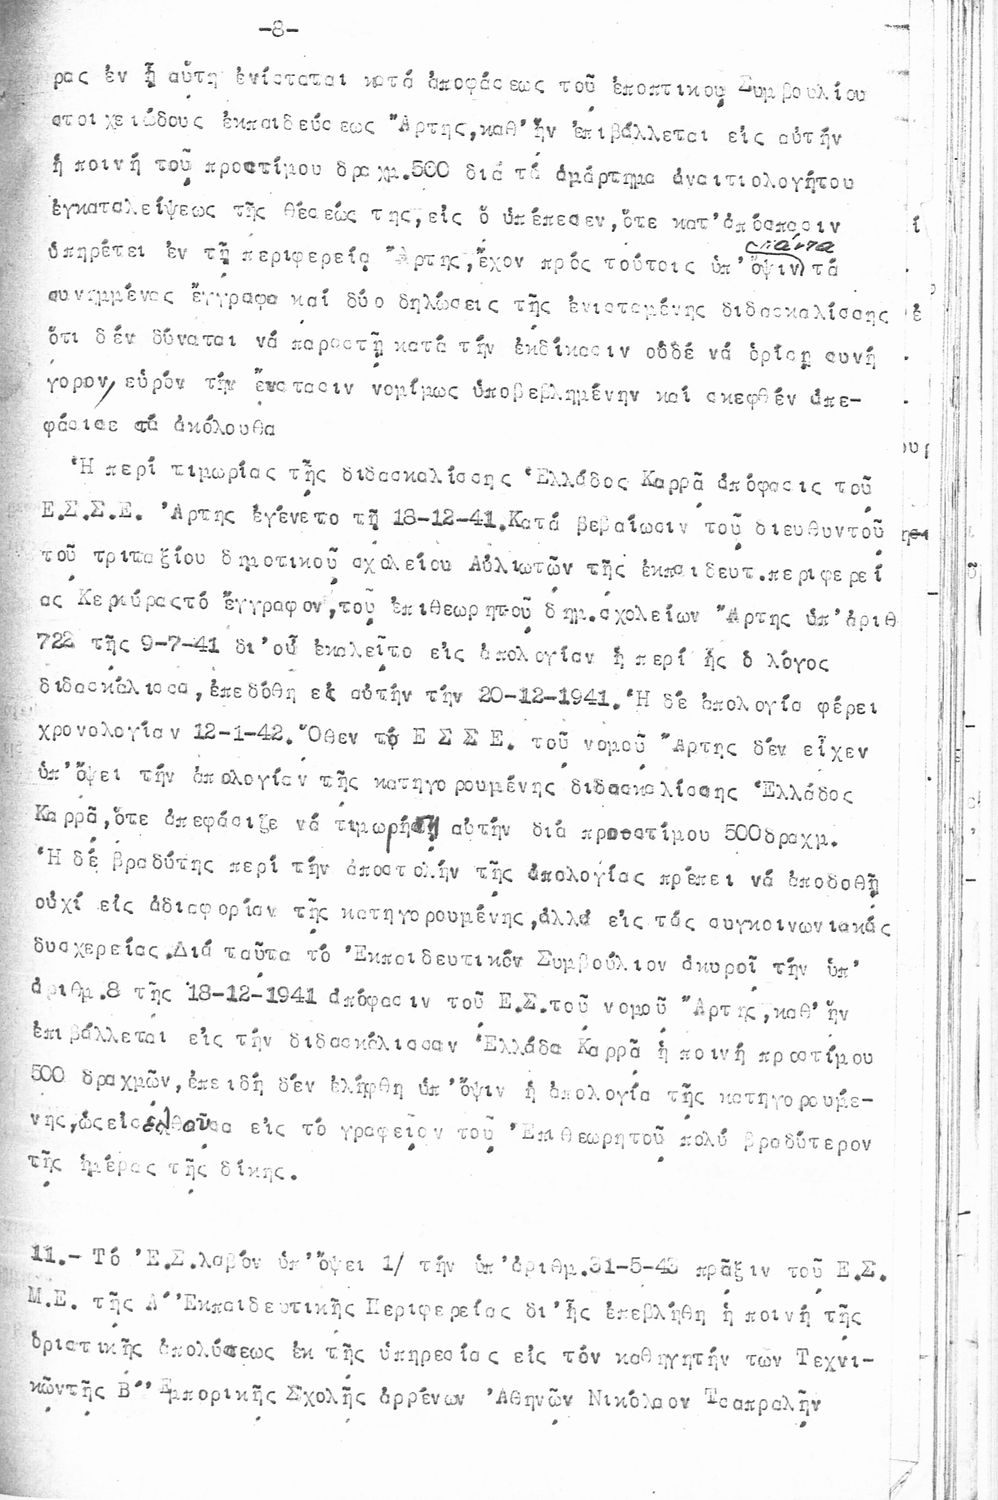 -8-
ρας ἐν ᾗ αὕτη ἐνίσταται κατά ἀποφάσεως τοῦ ἐποπτικοῦ Συμβουλίου
στοιχειώδους ἐκπαιδεύσεως Ἄρτης,καθ' ἥν ἐπιβάλλεται εἰς αὐτήν
ἡ ποινή τοῦ προστίμου δραχμ.500 διά τό ἁμάρτημα ἀναιτιολογήτου
ἐγκαταλείψεως τῆς θέσεώς της,εἰς ὅ ὑπέπεσεν,ὅτε κατ'ἀπόσπασιν
ὑπηρέτει ἐν τῇ περιφερείᾳ Ἄρτης,ἔχον πρός τούτοις ὑπ'ὄψιν πάντα τά
συνημμένας ἔγγραφα καί δύο δηλώσεις τῆς ἐνισταμένης διδασκαλίσσης
ὅτι δέν δύναται νά παραστῇ κατά τήν ἐκδίκασιν οὐδέ νά ὁρίσῃ συνή
γορον, εὑρόν τήν ἔνστασιν νομίμως ὑποβεβλημένην καί σκεφθέν ἀπε-
φάσισε τά ἀκόλουθα
Ἡ περί τιμωρίας τῆς διδασκαλίσσης Ἑλλάδος Καρρᾶ ἀπόφασις τοῦ
Ε.Σ.Σ.Ε. Ἄρτης ἐγένετο τῇ 18-12-41.Κατά βεβαίωσιν τοῦ διευθυντοῦ
τοῦ τριταξίου δημοτικοῦ σχολείου Αὐλιωτῶν τῆς ἐκπαιδευτ.περιφερεί
ας Κερκύρας τό ἔγγραφον,τοῦ ἐπιθεωρητοῦ δημ.σχολείων Ἄρτης ὑπ'ἀριθ
722 τῆς 9-7-41 δι'οὗ ἐκαλεῖτο εἰς ἀπολογίαν ἡ περί ἧς ὁ λόγος
διδασκάλισσα,ἐπεδόθη εἰς αὐτήν τήν 20-12-1941.Ἡ δέ ἀπολογία φέρει
χρονολογίαν 12-1-42.Ὅθεν τό Ε Σ Σ Ε. τοῦ νομοῦ Ἄρτης δέν εἶχεν
ὑπ'ὄψει τήν ἀπολογίαν τῆς κατηγορουμένης διδασκαλίσσης Ἑλλάδος
Καρρᾶ,ὅτε ἀπεφάσιζε νά τιμωρήσῃ αὐτήν διά προστίμου 500δραχμ.
Ἡ δέ βραδύτης περί τήν ἀποστολήν τῆς ἀπολογίας πρέπει νά ἀποδοθῇ
οὐχί εἰς ἀδιαφορίαν τῆς κατηγορουμένης,ἀλλά εἰς τάς συγκοινωνιακάς
δυσχερείας.Διά ταῦτα τό Ἐκπαιδευτικόν Συμβούλιον ἀκυροῖ τήν ὑπ'
ἀριθμ.8 τῆς 18-12-1941 ἀπόφασιν τοῦ Ε.Σ.τοῦ νομοῦ Ἄρτης,καθ'ἥν
ἐπιβάλλεται εἰς τήν διδασκάλισσαν Ἑλλάδα Καρρᾶ ἡ ποινή προστίμου
500 δραχμῶν,ἐπειδή δέν ἐλήφθη ὑπ'ὄψιν ἡ ἀπολογία τῆς κατηγορουμέ-
νης,ὡς εἰσελθοῦσα εἰς τό γραφεῖον τοῦ Ἐπιθεωρητοῦ πολύ βραδύτερον
τῆς ἡμέρας τῆς δίκης.
11.- Τό Ἐ.Σ.λαβόν ὑπ'ὄψει 1/ τήν ὑπ'ἀριθμ.31-5-43 πρᾶξιν τοῦ Ε.Σ.
Μ.Ε. τῆς Α' Ἐκπαιδευτικῆς Περιφερείας δι'ἧς ἐπεβλήθη ἡ ποινή τῆς
ὁριστικῆς ἀπολύσεως ἐκ τῆς ὑπηρεσίας εἰς τόν καθηγητήν τῶν Τεχνι-
κῶντῆς Β' Ἐμπορικῆς Σχολῆς ἀρρένων Ἀθηνῶν Νικόλαον Τσαπραλῆν